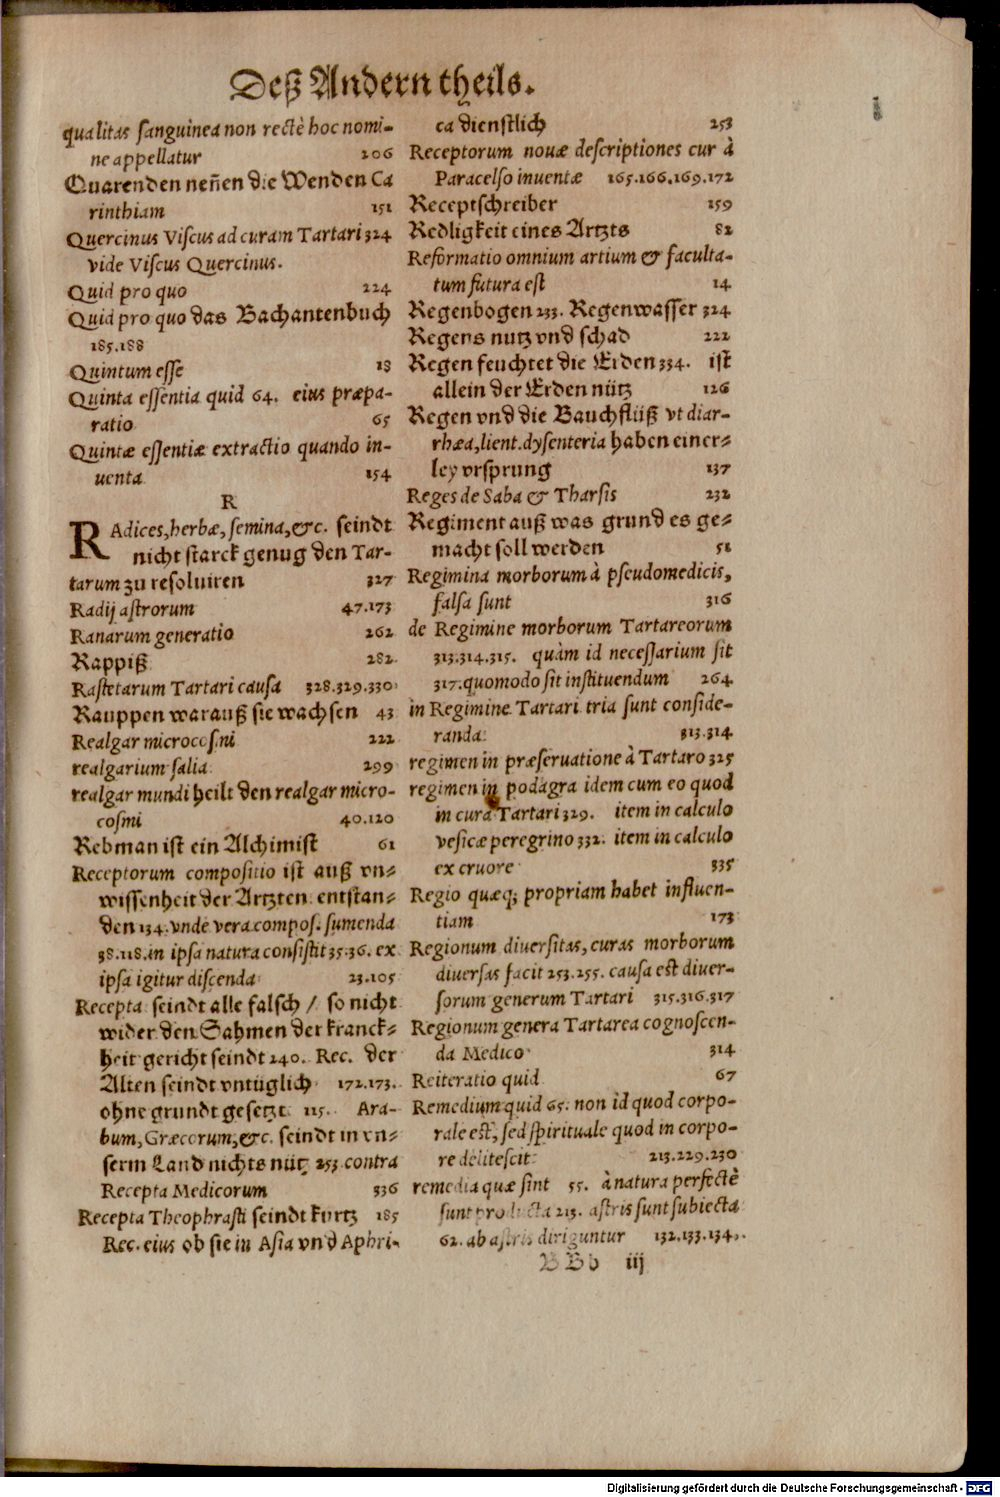 Deß Andern theils.
qualitas sanguinea non rectè hoc nomi-
ne appellatur 206
Quarenden neñen die Wenden Ca
rinthiam 151
Quercinus Viscus ad curam Tartari 324
vide Viscus Quercinus.
Quid pro quo 224
Quid pro quo das Bachantenbuch
185.188
Quintum esse 18
Quinta essentia quid 64. eius præpa-
ratio 65
Quintæ essentiæ extractio quando in-
uenta 154
R
RAdices, herbæ, semina, &c. seindt
nicht starck genug den Tar-
tarum zu resoluiren 327
Radij astrorum 47.173
Ranarum generatio 262
Rappiß 282
Rastetarum Tartari causa 328.329.330
Rauppen warauß sie wachsen 43
Realgar microcosmi 222
realgarium salia 299
realgar mundi heilt den realgar micro-
cosmi 40.120
Rebman ist ein Alchimist 61
Receptorum compositio ist auß vn-
wissenheit der Artzten entstan-
den 134. vnde vera compos. sumenda
38.118. in ipsa natura consistit 35.36. ex
ipsa igitur discenda 23.105
Recepta seindt alle falsch / so nicht
wider den Sahmen der kranck-
heit gericht seindt 240. Rec. der
Alten seindt vntüglich 172.173.
ohne grundt gesetzt 115. Ara-
bum, Græcorum, &c. seindt in vn-
serm Land nichts nütz 253 contra
Recepta Medicorum 336
Recepta Theophrasti seindt kurtz 185
Rec. eius ob sie in Asia vnd Aphri-
ca dienstlich 253
Receptorum nouæ descriptiones cur à
Paracelso inuentæ 165.166.169.172
Receptschreiber 159
Redligkeit eines Artzts 82
Reformatio omnium artium & faculta-
tum futura est 14
Regenbogen 233. Regenwasser 324
Regens nutz vnd schad 222
Regen feuchtet die Erden 334. ist
allein der Erden nütz 126
Regen vnd die Bauchflüß vt diar-
rhæa, lient. dysenteria haben einer-
ley vrsprung 137
Reges de Saba & Tharsis 232
Regiment auß was grund es ge-
macht soll werden 51
Regimina morborum à pseudomedicis,
falsa sunt 316
de Regimine morborum Tartareorum
313.314.315. quàm id necessarium sit
317. quomodo sit instituendum 264
in Regimine Tartari tria sunt conside-
randa 313.314
regimen in præseruatione à Tartaro 325
regimen in podagra idem cum eo quod
in cura Tartari 329. item in calculo
vesicæ peregrino 332. item in calculo
ex cruore 335
Regio quæq; propriam habet influen-
tiam 173
Regionum diuersitas, curas morborum
diuersas facit 253.255. causa est diuer-
sorum generum Tartari 315.316.317
Regionum genera Tartarea cognoscen-
da Medico 314
Reiteratio quid 67
Remedium quid 65. non id quod corpo-
rale est, sed spirituale quod in corpo-
re delitescit 213.229.230
remedia quæ sint 55. à natura perfectè
sunt producta 213. astris sunt subiecta
62. ab astris diriguntur 132.133.134.
BBb iij
Digitalisierung gefördert durch die Deutsche Forschungsgemeinschaft - DFG